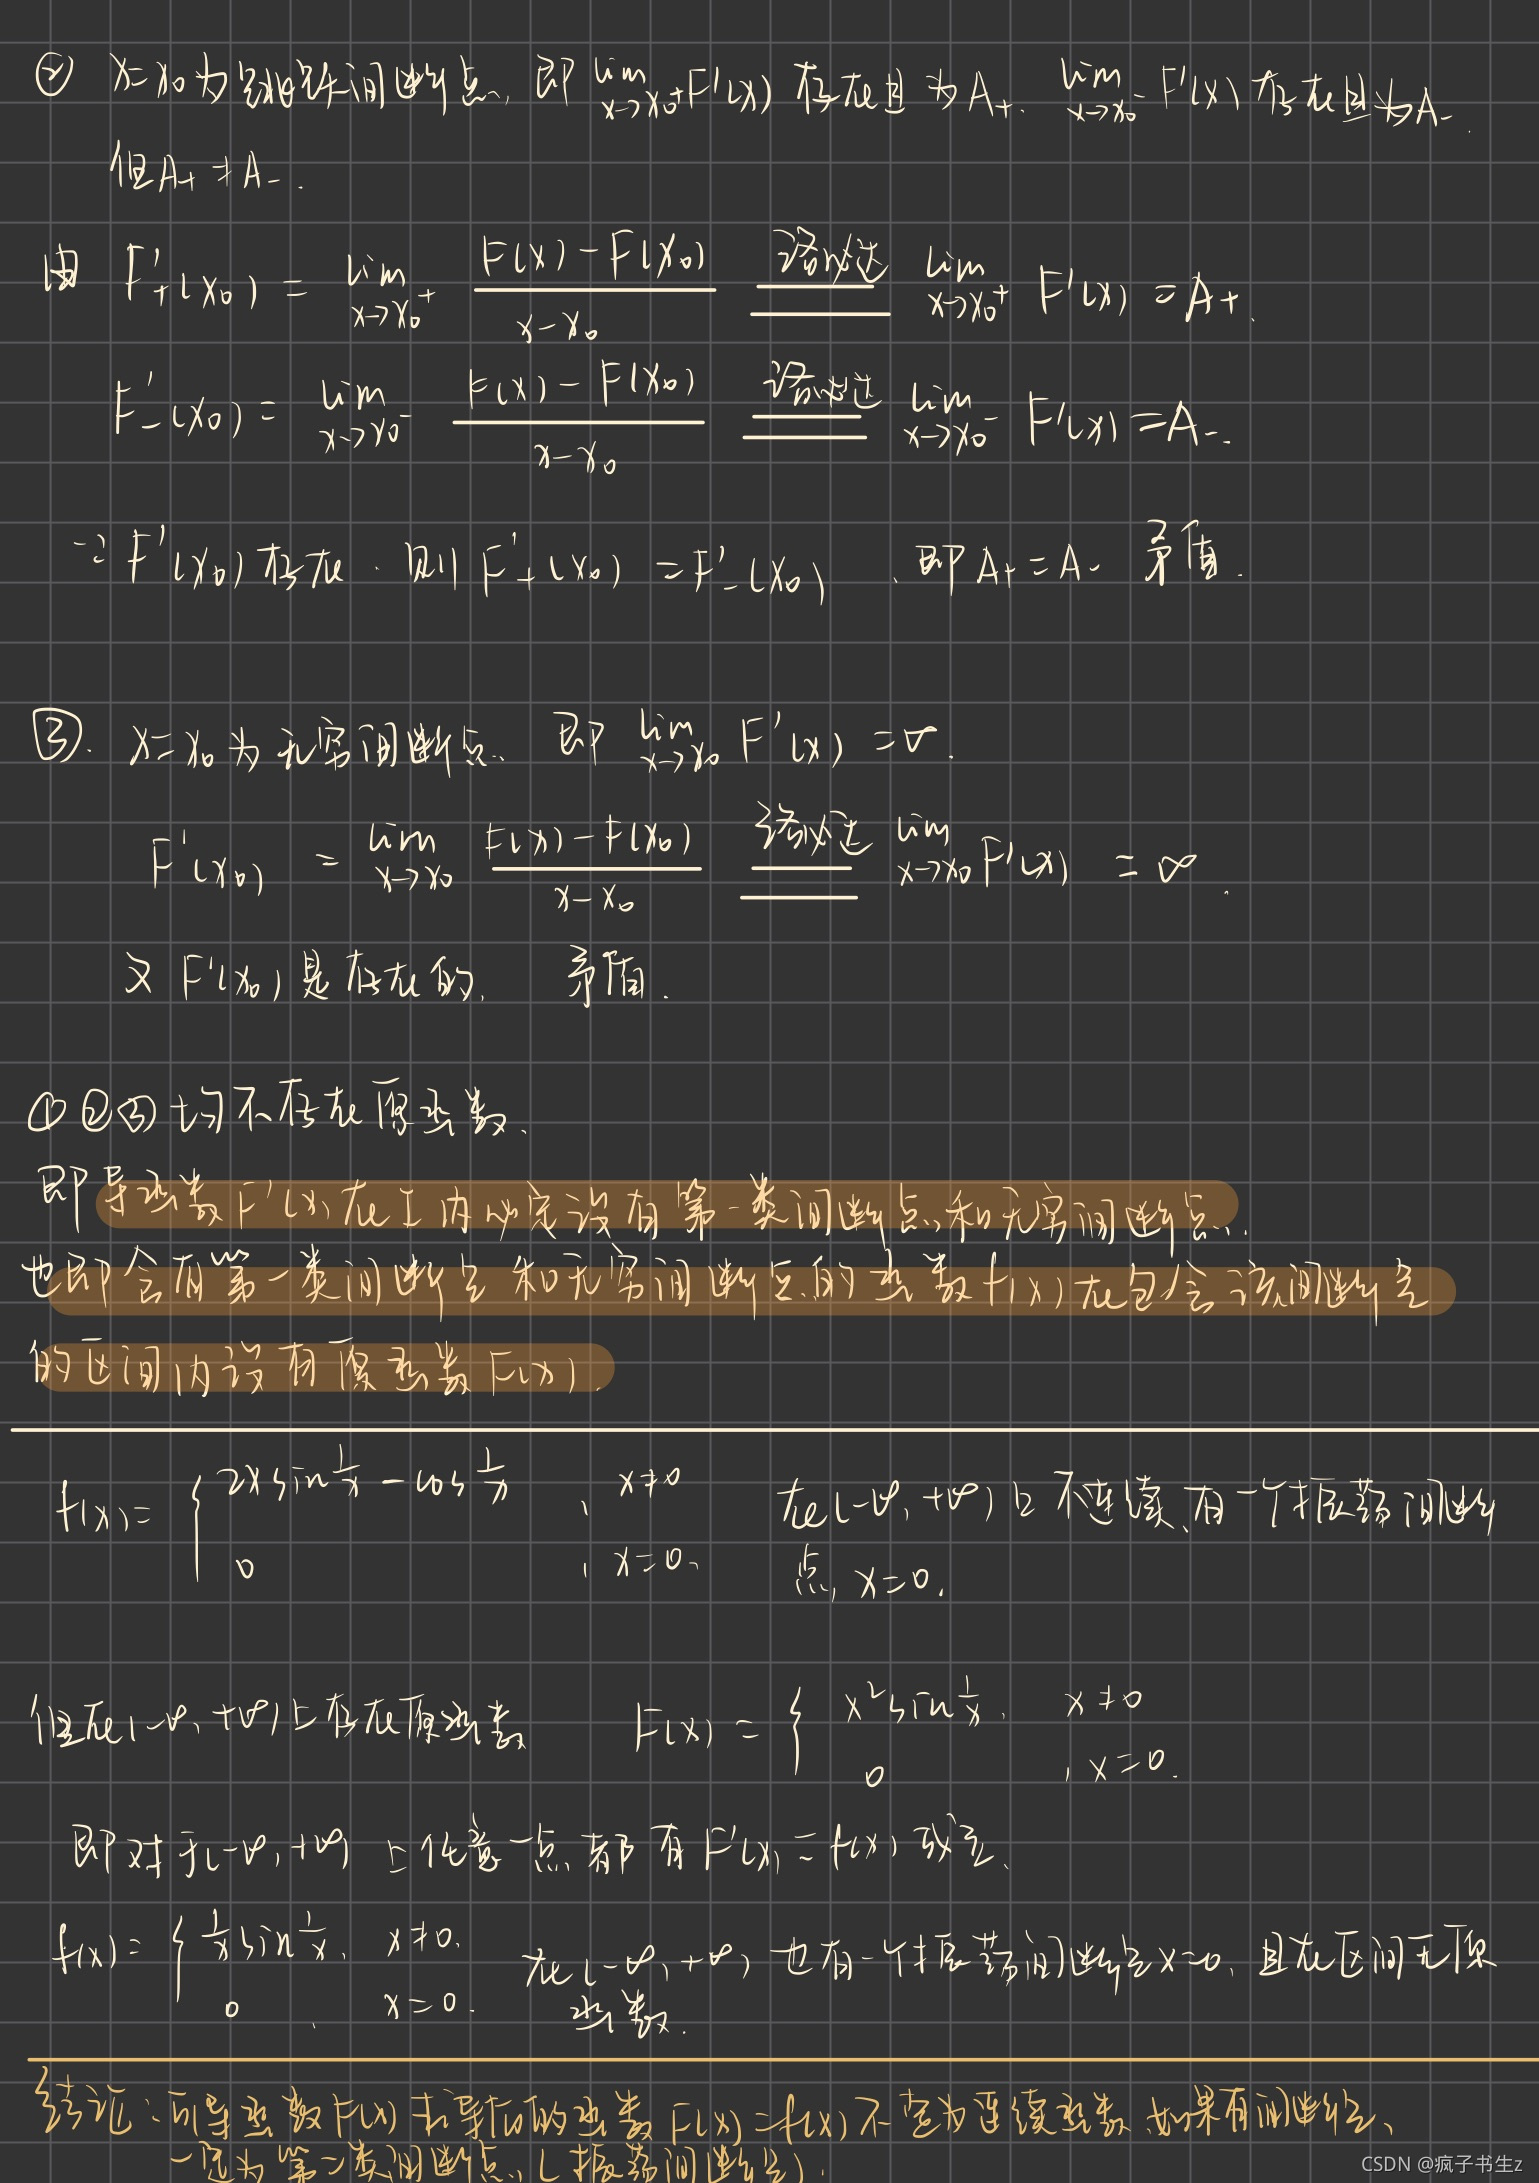 ② x=x₀为跳跃间断点,即 lim x→x₀⁺ F'(x) 存在且为A₊. lim x→x₀⁻ F'(x) 存在且为A₋.
但A₊≠A₋.
由 F'₊(x₀) = lim x→x₀⁺ (F(x)-F(x₀))/(x-x₀) 洛必达 lim x→x₀⁺ F'(x) = A₊.
F'₋(x₀) = lim x→x₀⁻ (F(x)-F(x₀))/(x-x₀) 洛必达 lim x→x₀⁻ F'(x) = A₋.
∵ F'(x₀)存在. 则 F'₊(x₀) = F'₋(x₀), 即 A₊=A₋ 矛盾.
③. x=x₀为无穷间断点. 即 lim x→x₀ F'(x) = ∞.
F'(x₀) = lim x→x₀ (F(x)-F(x₀))/(x-x₀) 洛必达 lim x→x₀ F'(x) = ∞.
又 F'(x₀)是存在的, 矛盾.
①②③均不存在原函数.
即导函数F'(x)在I内必定没有第一类间断点和无穷间断点.
也即含有第一类间断点和无穷间断点的函数f(x)在包含该间断点
的区间内没有原函数F(x).
f(x)= { 2xsin 1/x - cos 1/x , x≠0 在(-∞,+∞)上不连续,有一个振荡间断
0 , x=0. 点, x=0.
但在(-∞,+∞)上存在原函数 F(x) = { x²sin 1/x , x≠0
0 , x=0.
即对于(-∞,+∞)上任意一点都有F'(x)=f(x)成立.
f(x)= { 1/x sin 1/x , x≠0. 在(-∞,+∞)也有一个振荡间断点x=0,且在区间无原
0 , x=0. 函数.
结论:可导函数F(x)求导后的函数F(x)=f(x)不定为连续函数,如果有间断点,
一定为第二类间断点(振荡间断点).
CSDN @疯子书生z